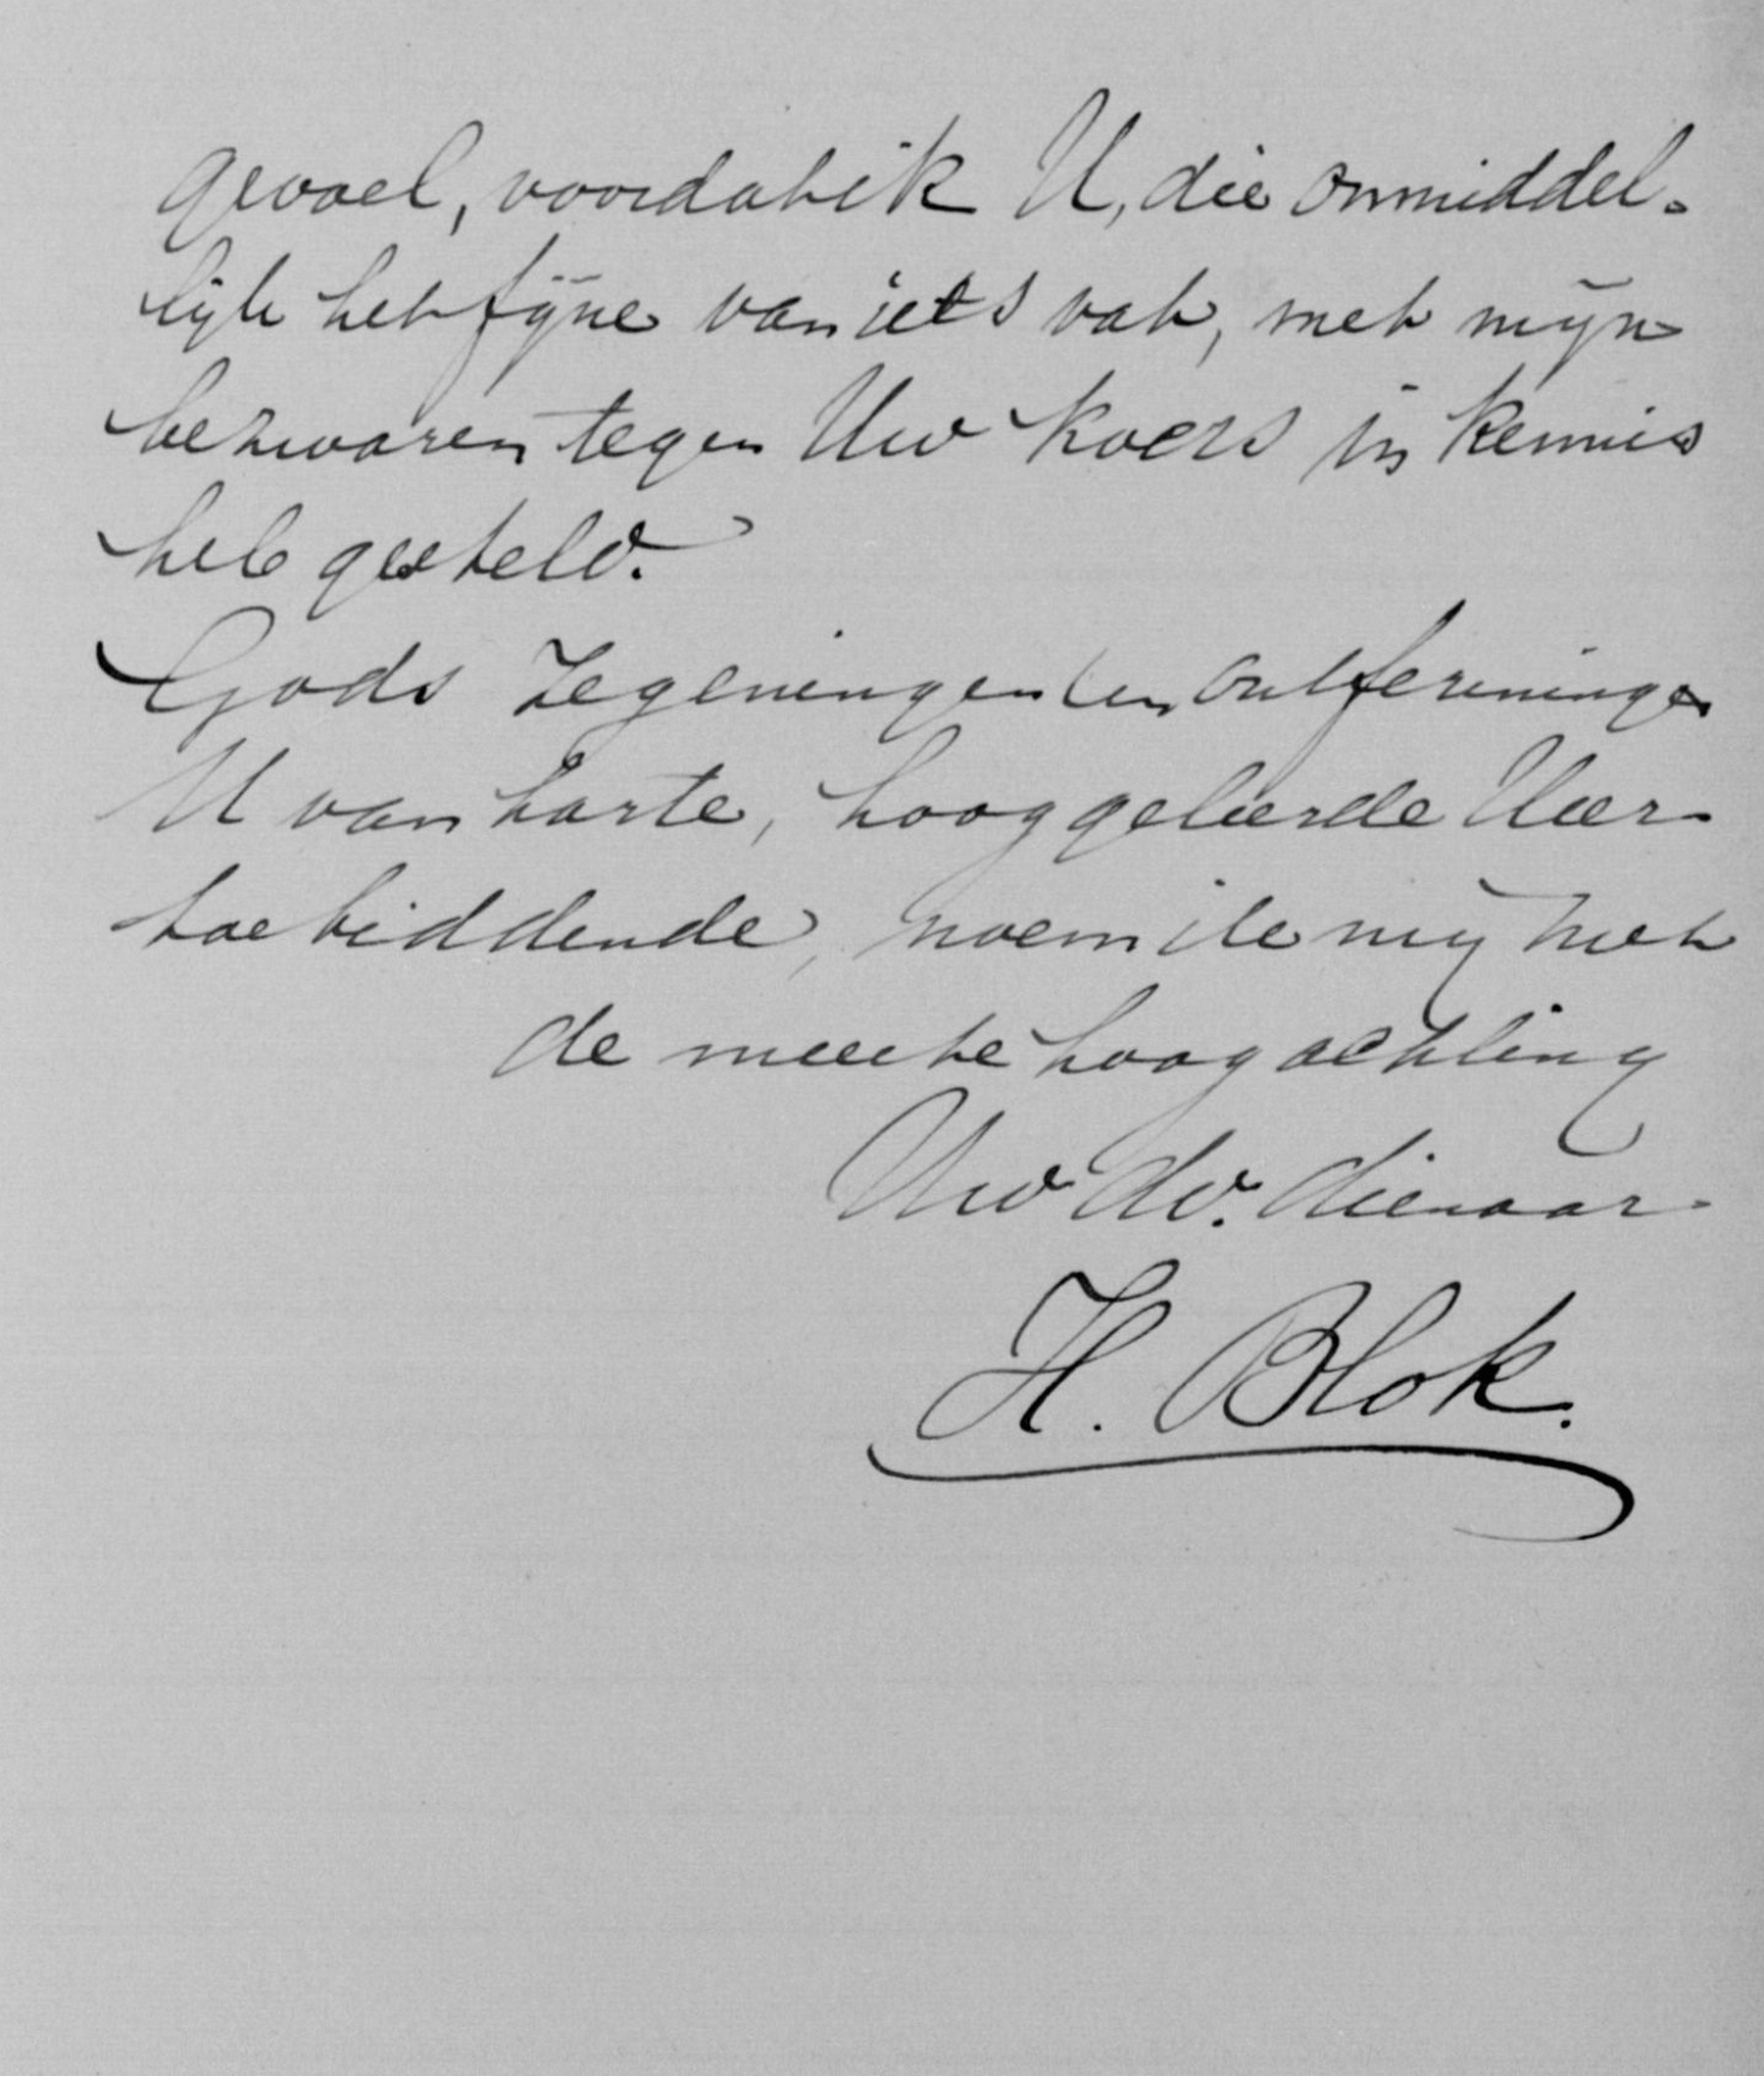 gevoel, voordat ik U, die onmiddel-
lijk het fijne van iets vat, met mijn
bezwaren tegen Uw koers in kennis
heb gesteld.
Gods zegeningen en ontfermingen
U van harte, hooggeleerde Heer
toebiddende, noem ik mij met
de meeste hoogachting
Uw dv. dienaar
H. Blok.